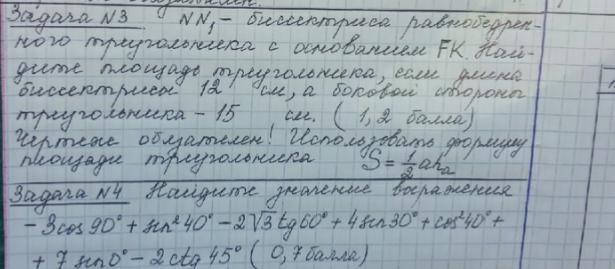 Задача N3 NN₁ - биссектриса равнобедрен-
ного треугольника с основанием FK. Най-
дите площадь треугольника, если длина
биссектрисы 12 см, а боковой стороны
треугольника - 15 см. (1,2 балла)
Чертеж обязателен! Использовать формулу
площади треугольника S = 1/2 ahₐ
Задача N4 Найдите значение выражения
- 3cos 90° + sin² 40° - 2√3 tg 60° + 4 sin 30° + cos² 40° +
+ 7 sin 0° - 2 ctg 45° (0,7 балла)